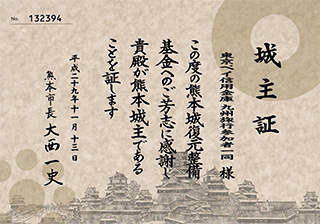 No. 132394
城主証
東京ベイ信用金庫 九州旅行参加者一同 様
この度の熊本城復元整備
基金へのご芳志に感謝し
貴殿が熊本城主である
ことを証します
平成二十九年十一月十三日
熊本市長 大西一史